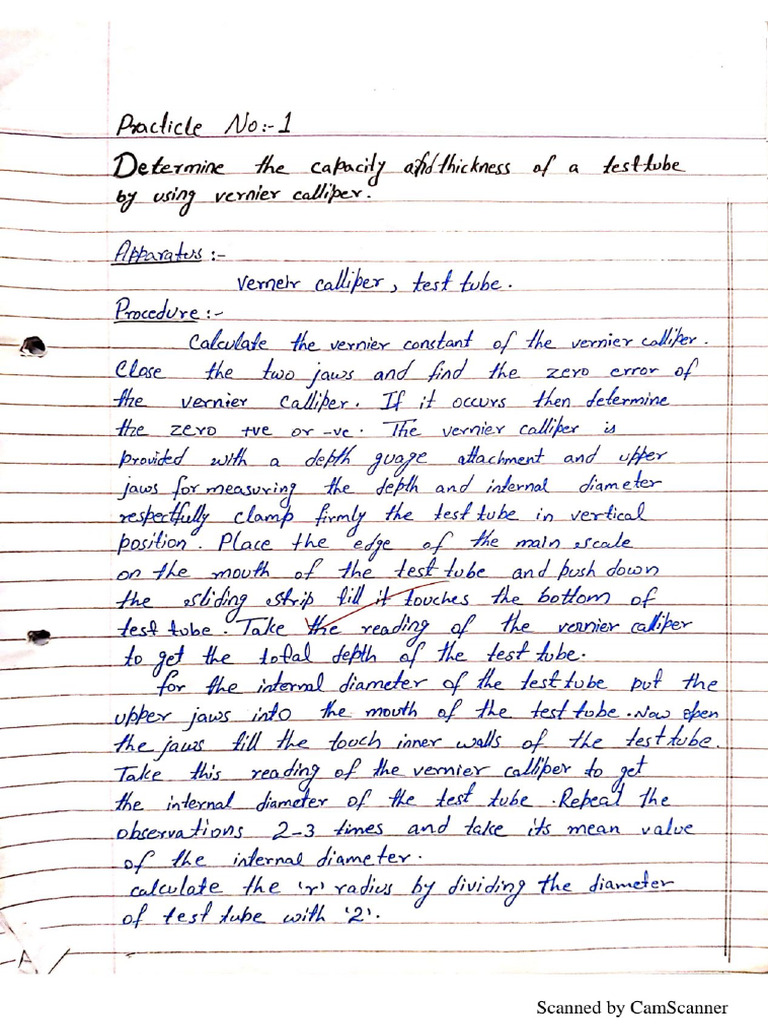 Practicle No:-1
Determine the capacity and thickness of a test tube
by using vernier calliper.
Apparatus :-
verneir calliper, test tube.
Procedure :-
Calculate the vernier constant of the vernier calliper.
Close the two jaws and find the zero error of
the vernier calliper. If it occurs then determine
the zero +ve or -ve. The vernier calliper is
provided with a depth guage attachment and upper
jaws for measuring the depth and internal diameter
respectfully clamp firmly the test tube in vertical
position. Place the edge of the main scale
on the mouth of the test tube and push down
the sliding strip till it touches the bottom of
test tube. Take the reading of the vernier calliper
to get the total depth of the test tube.
for the internal diameter of the test tube put the
upper jaws into the mouth of the test tube. Now open
the jaws till the touch inner walls of the test tube.
Take this reading of the vernier calliper to get
the internal diameter of the test tube. Repeat the
observations 2-3 times and take its mean value
of the internal diameter.
calculate the 'r' radius by dividing the diameter
of test tube with '2'.
Scanned by CamScanner